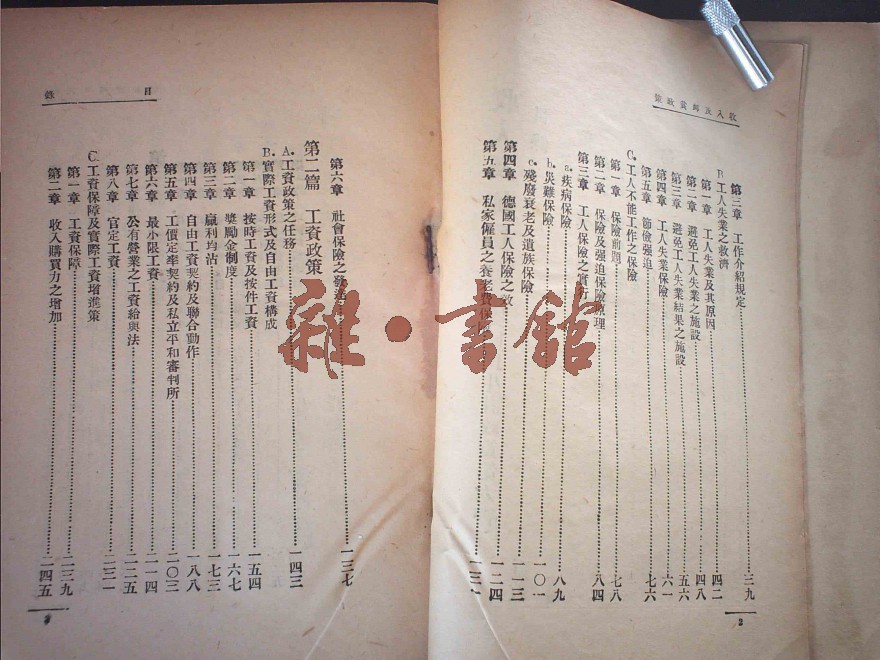 收入及卹貧政策
第三章 工作介紹規定 三九
B 工人失業之救濟
第一章 工人失業及其原因 四二
第二章 避免工人失業之施設 四八
第三章 避免工人失業結果之施設 五六
第四章 工人失業保險 六一
第五章 節儉强迫 七六
C. 工人不能工作之保險
第一章 保險前題 七八
第二章 保險及强迫保險原理 八四
第三章 工人保險之實行
a. 疾病保險 八九
b. 災難保險 一〇一
c. 殘廢衰老及遺族保險 一一三
第四章 德國工人保險之 一二四
第五章 私家僱員之養老費保 一三一
2
目 錄
第六章 社會保險之發 一三七
第二篇 工資政策
A. 工資政策之任務 一四三
B. 實際工資形式及自由工資構成
第一章 按時工資及按件工資 一五四
第二章 獎勵金制度 一六七
第三章 贏利均沾 一七三
第四章 自由工資契約及聯合動作 一八八
第五章 工價定率契約及私立平和審判所 二〇三
第六章 最小限工資 二一四
第七章 公有營業之工資給與法 二二五
第八章 官定工資 二三一
C 工資保障及實際工資增進策
第一章 工資保障 二三九
第二章 收入購買力之增加 二四五
3
雜·書館